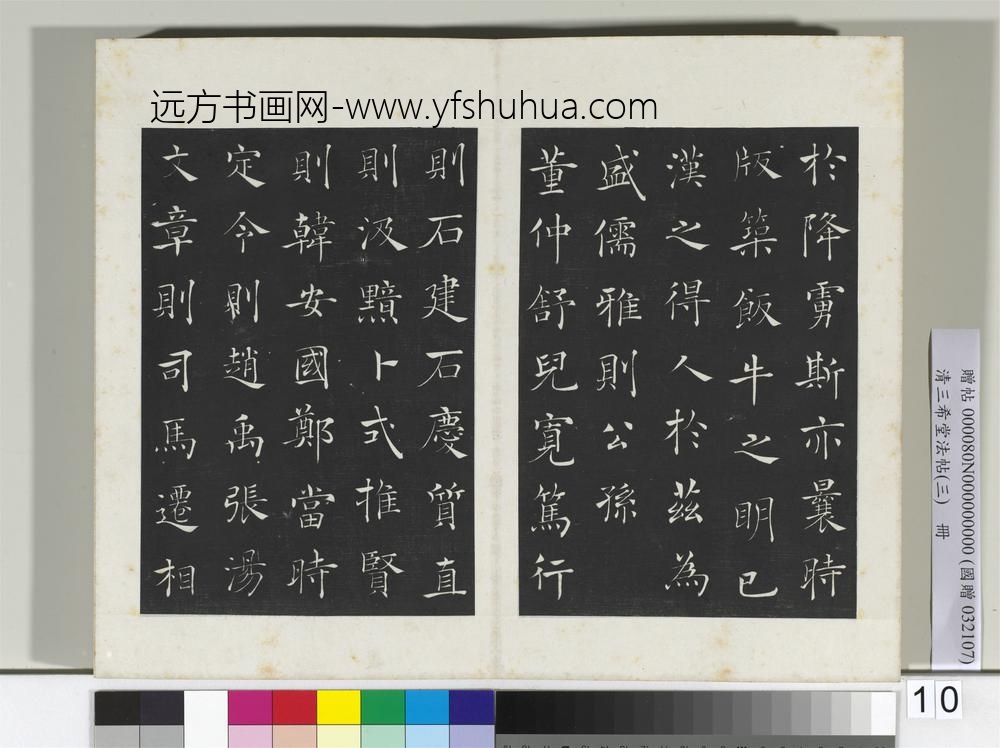 远方书画网-www.yfshuhua.com
於降虜斯亦曩時
版築飯牛之明已
漢之得人於茲為
盛儒雅則公孫
董仲舒兒寬篤行
則石建石慶質直
則汲黯卜式推賢
則韓安國鄭當時
定令則趙禹張湯
文章則司馬遷相
贈帖 000080N000000000 (國贈 032107)
清三希堂法帖(三) 冊
10